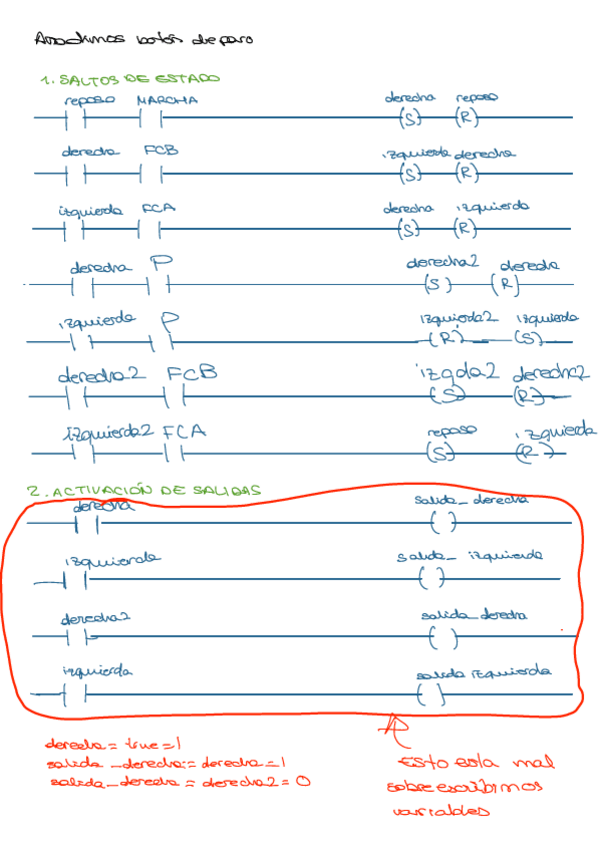 Añadimos botón de paro
1. SALTOS DE ESTADO
reposo MARCHA derecha reposo
(S) (R)
derecha FCB izquierda derecha
(S) (R)
izquierda FCA derecha izquierda
(S) (R)
derecha P derecha2 derecha
(S) (R)
izquierda P izquierda2 izquierda
(R) (S)
derecha2 FCB izqda2 derecha2
(S) (R)
izquierda2 FCA reposo izquierda
(S) (R)
2. ACTIVACIÓN DE SALIDAS
derecha salida_derecha
( )
izquierda salida_izquierda
( )
derecha2 salida_derecha
( )
izquierda salida izquierda
( )
derecha = true = 1
salida_derecha:= derecha = 1
salida_derecha = derecha2 = 0
Esto esta mal
sobreescribimos
variables